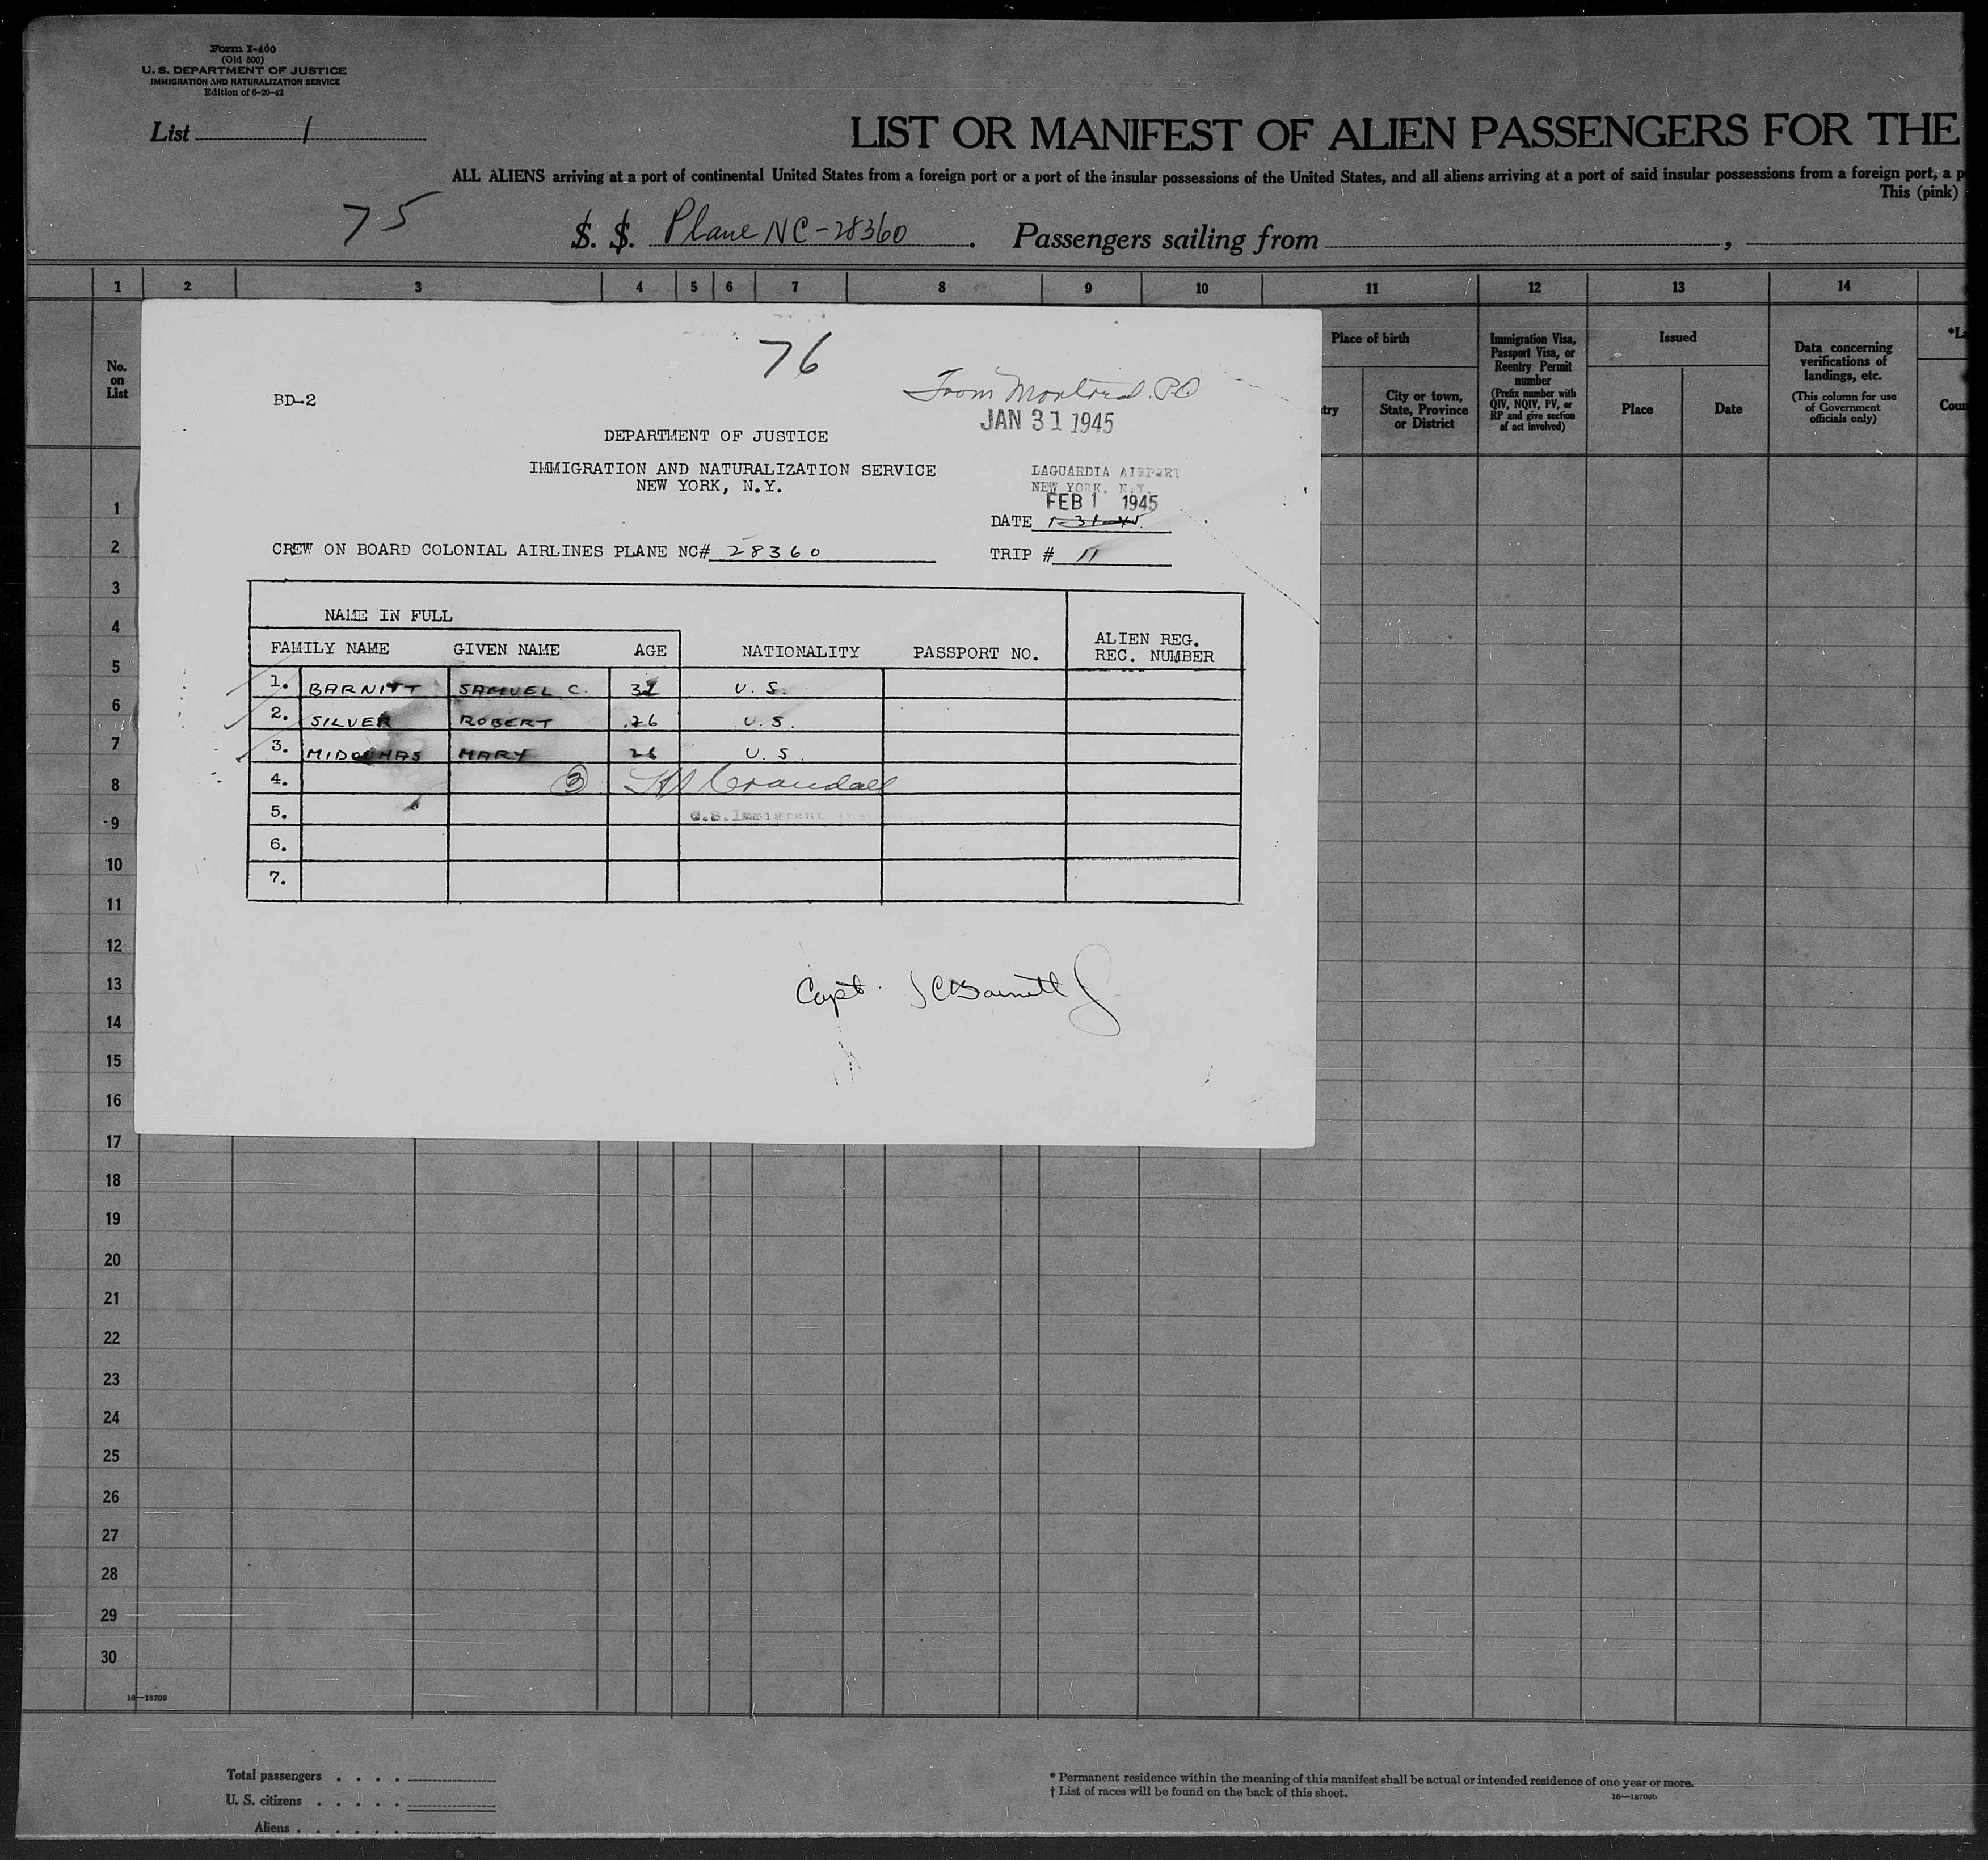 Form I-400
(Old 500)
U. S. DEPARTMENT OF JUSTICE
IMMIGRATION AND NATURALIZATION SERVICE
Edition of 6-20-42
List 1
LIST OR MANIFEST OF ALIEN PASSENGERS FOR THE
ALL ALIENS arriving at a port of continental United States from a foreign port or a port of the insular possessions of the United States, and all aliens arriving at a port of said insular possessions from a foreign port, a p
This (pink)
75
S. S. Plane NC-28360. Passengers sailing from ,
1 2 3 4 5 6 7 8 9 10 11 12 13 14
No. on List
Place of birth
City or town, State, Province or District
Immigration Visa, Passport Visa, or Reentry Permit number
(Prefix number with QIV, NQIV, PV, or RP and give section of act involved)
Issued
Place Date
Data concerning verifications of landings, etc.
(This column for use of Government officials only)
76
From Montreal. PQ
BD-2
JAN 31 1945
DEPARTMENT OF JUSTICE
IMMIGRATION AND NATURALIZATION SERVICE
NEW YORK, N.Y.
LAGUARDIA AIRPORT
NEW YORK. N.Y.
FEB 1 1945
DATE 1-31-45
CREW ON BOARD COLONIAL AIRLINES PLANE NC# 28360
TRIP # 11
NAME IN FULL
FAMILY NAME GIVEN NAME AGE NATIONALITY PASSPORT NO. ALIEN REG. REC. NUMBER
1. BARNITT SAMUEL C. U. S.
2. SILVER ROBERT 26 U. S.
3. MARY 26 U. S.
4. 3 Crandall
5. U.S. Immigrant
6.
7.
Capt. SCBarnitt Jr
1
2
3
4
5
6
7
8
9
10
11
12
13
14
15
16
17
18
19
20
21
22
23
24
25
26
27
28
29
30
16—18709
Total passengers . . . .
U. S. citizens . . . . .
Aliens . . . . . .
* Permanent residence within the meaning of this manifest shall be actual or intended residence of one year or more.
† List of races will be found on the back of this sheet.
16—18709b